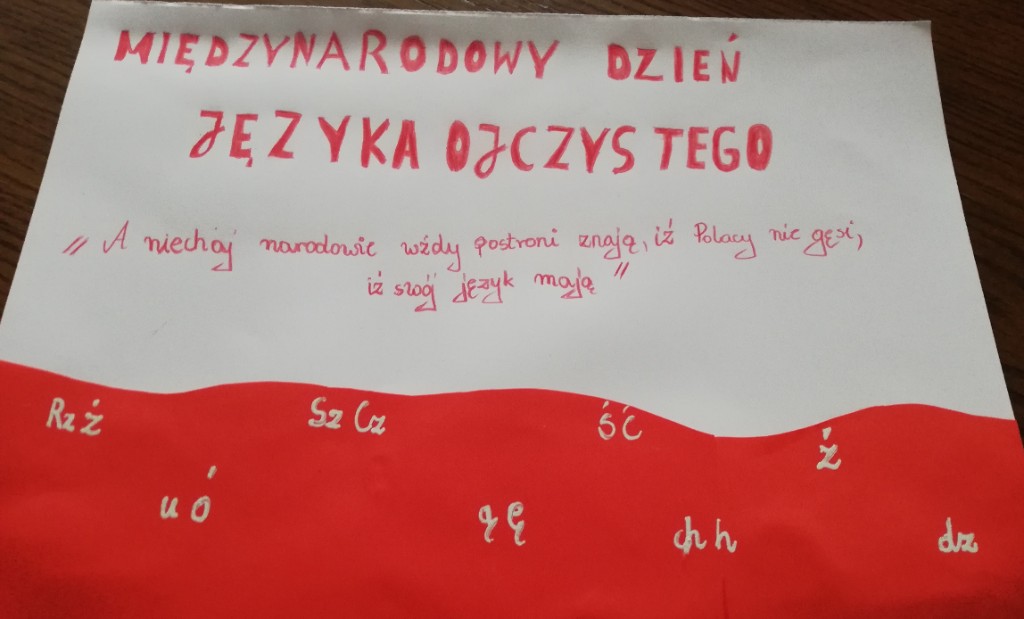 MIĘDZYNARODOWY DZIEŃ
JĘZYKA OJCZYSTEGO
" A niechaj narodowie wżdy postroni znają, iż Polacy nie gęsi,
iż swój język mają "
Rz ż
Sz Cz
ś ć
ź
u ó
ą ę
ch h
dz